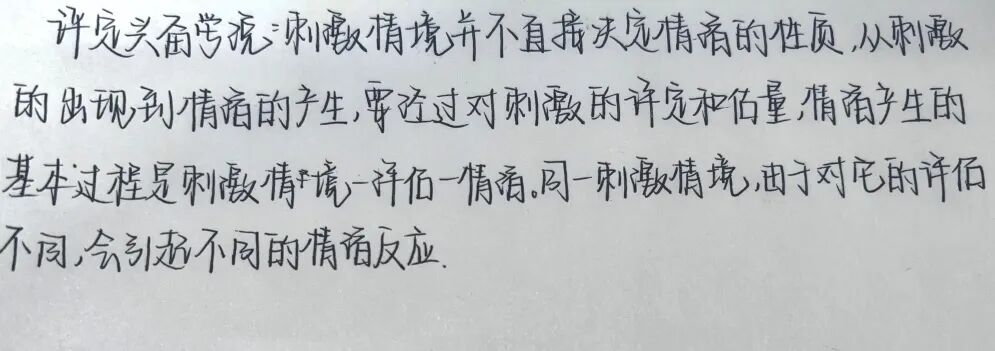 评定兴奋学说:刺激情境并不直接决定情绪的性质,从刺激
的出现到情绪的产生,要经过对刺激的评定和估量,情绪产生的
基本过程是刺激情境—评估—情绪。同一刺激情境,由于对它的评估
不同,会引起不同的情绪反应.